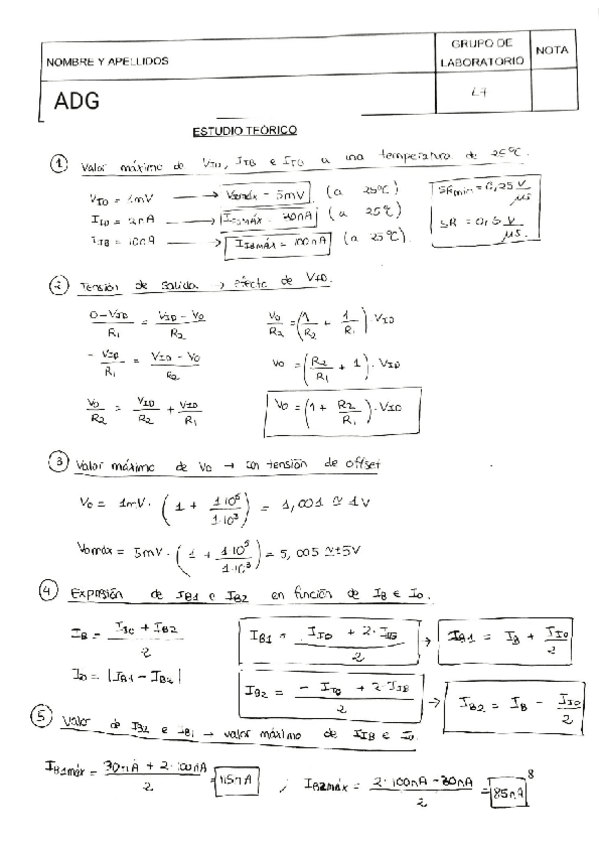 NOMBRE Y APELLIDOS
GRUPO DE LABORATORIO
NOTA
ADG
L7
ESTUDIO TEÓRICO
① Valor máximo de VIO, IIB e IIO a una temperatura de 25ºC.
VIO = 1mV → VIOmáx = 5mV (a 25ºC)
IIO = 2nA → IIOmáx = 30nA (a 25ºC)
IIB = 10nA → IIBmáx = 100nA (a 25ºC).
SRmin = 0,25 V/μs
SR = 0,5 V/μs.
② Tensión de salida → efecto de VIO.
0-VIO/R1 = VIO - VO/R2
VO/R2 = (1/R2 + 1/R1) · VIO
- VIO/R1 = VIO - VO/R2
VO = (R2/R1 + 1) · VIO
VO/R2 = VIO/R2 + VIO/R1
VO = (1 + R2/R1) · VIO
③ Valor máximo de VO → con tensión de offset
VO = 1mV · (1 + 1·10⁶/1·10³) = 1,001 ≃ 1V
VOmáx = 5mV · (1 + 1·10⁶/1·10³) = 5,005 ≃ +5V
④ Expresión de IB1 e IB2 en función de IB e IO.
IB = IB1 + IB2/2
IB1 = IIO + 2·IIB/2 → IB1 = IB + IIO/2
IO = |IB1 - IB2|
IB2 = - IIO + 2·IIB/2 → IB2 = IB - IIO/2
⑤ Valor de IB2 e IB1 → valor máximo de IIB e IO.
IB1máx = 30nA + 2·100nA/2 = 115nA ; IB2máx = 2·100nA - 30nA/2 = 85nA
8